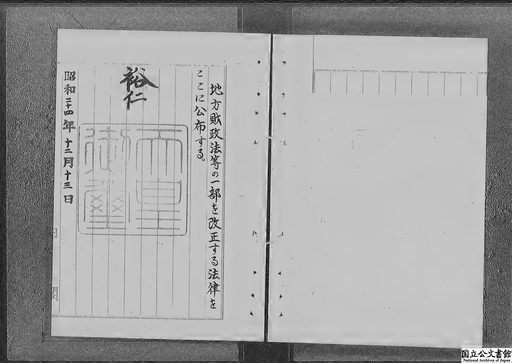 地方財政法等の一部を改正する法律を
ここに公布する。
裕仁
天皇
御璽
昭和二十四年十二月十三日
国立公文書館
National Archives of Japan